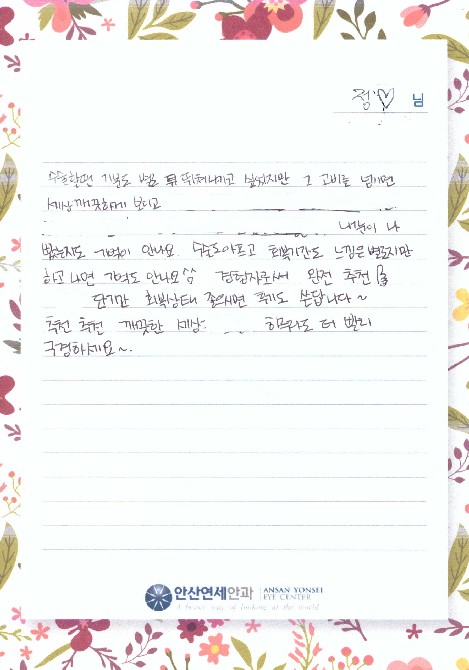 정♡ 님
수술할땐 기분도 별로 뛰쳐나가고 싶었지만 그 고비를 넘기면
세상 깨끗하게 보이고
나
기억이 안나요. 수술도 아프고 회복기간도 느낌은 별로지만
하고나면 기억도 안나요^^ 경험자로써 완전 추천
단기만 회복상태 좋으면 폰도 쓴답니다~
추천 추천 깨끗한 세상. 하루라도 더 빨리
구경하세요~.
안산연세안과 ANSAN YONSEI EYE CENTER
A better way of looking at the world